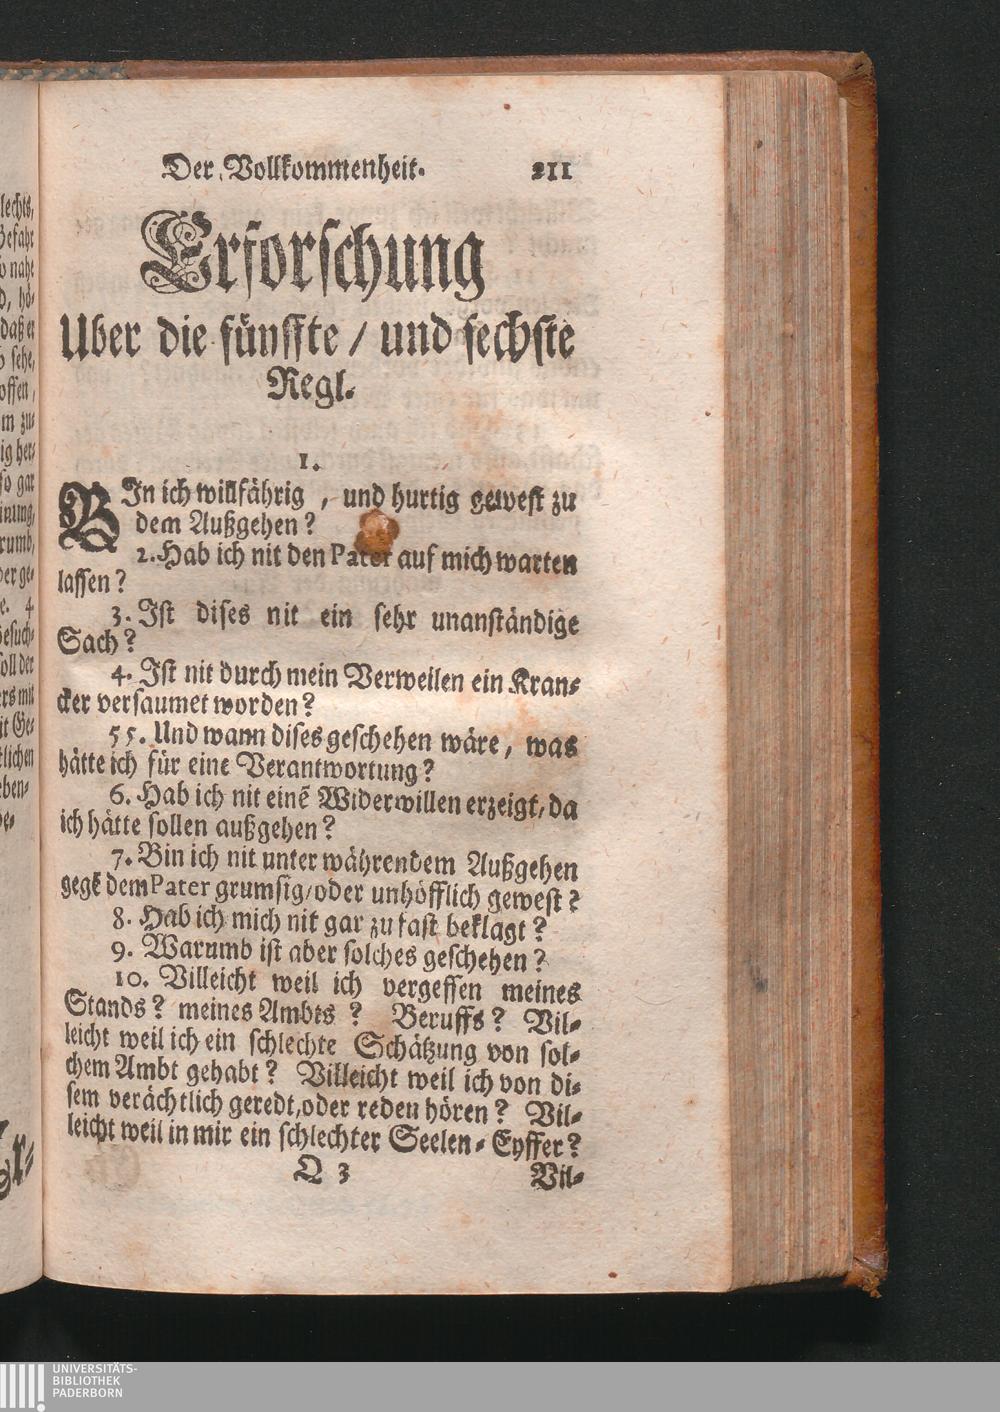 Der Vollkommenheit. 211
Erforschung
Uber die fünffte / und sechste
Regl.
1.
BIn ich willfährig , und hurtig gewest zu
dem Außgehen ?
2. Hab ich nit den Pater auf mich warten
lassen ?
3. Ist dises nit ein sehr unanständige
Sach ?
4. Ist nit durch mein Verweilen ein Kran-
cker versaumet worden ?
55. Und wann dises geschehen wäre, was
hätte ich für eine Verantwortung ?
6. Hab ich nit einē Widerwillen erzeigt, da
ich hätte sollen außgehen ?
7. Bin ich nit unter währendem Außgehen
gegē dem Pater grumsig / oder unhöfflich gewest ?
8. Hab ich mich nit gar zu fast beklagt ?
9. Warumb ist aber solches geschehen ?
10. Villeicht weil ich vergessen meines
Stands ? meines Ambts ? Beruffs ? Vil-
leicht weil ich ein schlechte Schätzung von sol-
chem Ambt gehabt ? Villeicht weil ich von di-
sem verächtlich geredt, oder reden hören ? Vil-
leicht weil in mir ein schlechter Seelen-Eyffer ?
Q 3 Vil-
lechts,
Gefaht
so naht
d, hö-
daß er
sehe,
offen,
m zu-
ig her-
so gar
inung,
rumb,
der ge-
e. 4
Gesuch-
soll der
ers mit
it Ge-
tlichen
eben-
be-
Er-
UNIVERSITÄTS-
BIBLIOTHEK
PADERBORN